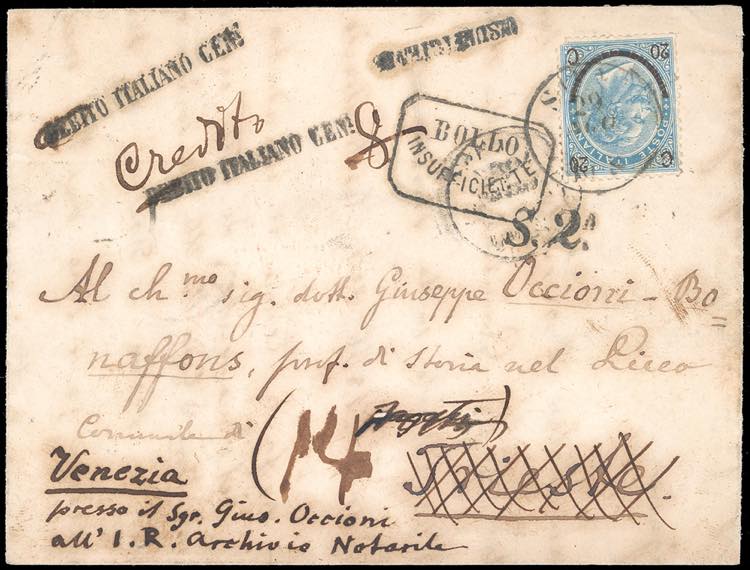 DEBITO ITALIANO CENi
Credito
DEBITO ITALIANO CENi 8
BOLLO
INSUFFICIENTE
C 20
POSTE ITALIANE
C 20
S. 2.
Al ch.mo sig. dott. Giuseppe Occioni-Bo=
naffons, prof. di storia nel Liceo
Comunale di
Trieste
(14
Venezia
presso il Sgr. Gius. Occioni
all' I. R. Archivio Notarile